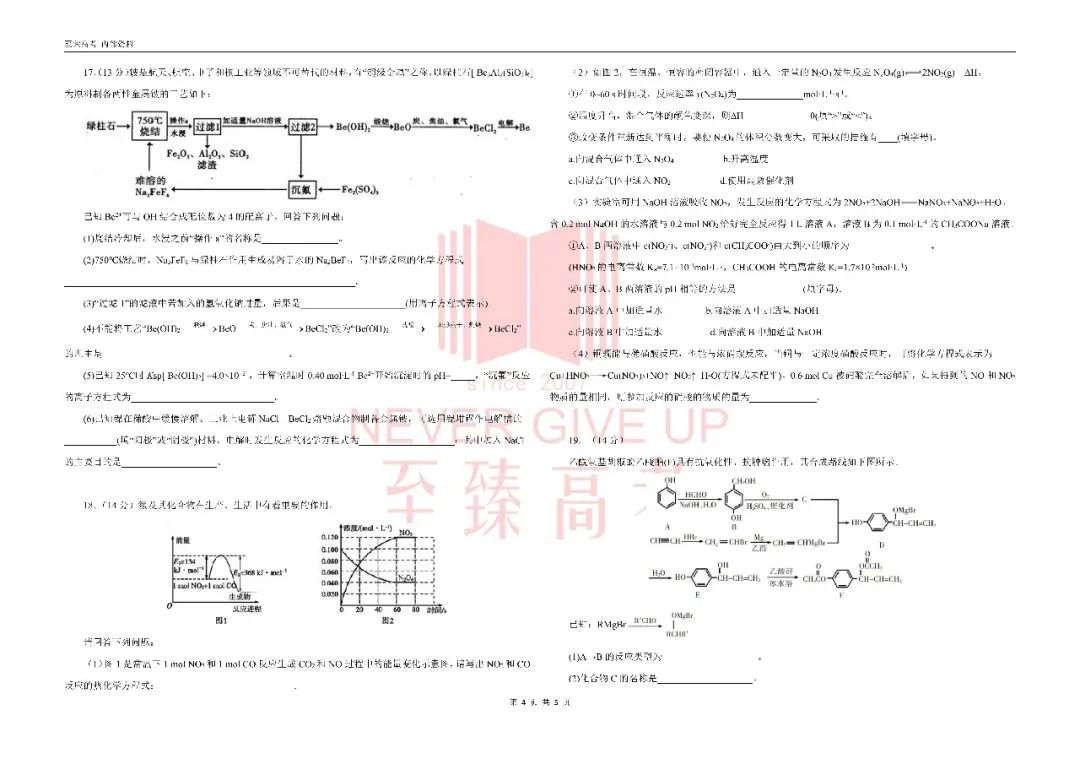 至臻高考 内部资料
17.(13分)铍是航天、航空、电子和核工业等领域不可替代的材料,有“超级金属”之称,以绿柱石[Be3Al2(SiO3)6]
为原料制备两性金属铍的工艺如下:
绿柱石 750℃烧结 操作a 水浸 过滤1 加适量NaOH溶液 过滤2 Be(OH)2 煅烧 BeO 炭、焦油、氯气 BeCl2 电解 Be
Fe2O3、Al2O3、SiO2
滤渣
难溶的
Na3FeF6 沉氟 Fe2(SO4)3
已知Be2+可与OH-结合成配位数为4的配离子,回答下列问题:
(1)烧结冷却后,水浸之前“操作a”的名称是
(2)750℃烧结时,Na3FeF6与绿柱石作用生成易溶于水的Na2BeF4,写出该反应的化学方程式
(3)“过滤1”的滤液中若加入的氢氧化钠过量,后果是 (用离子方程式表示).
(4)不能将工艺“Be(OH)2 煅烧 BeO 炭、焦油、氯气 BeCl2”改为“Be(OH)2 BeCl2”
的原因是
(5)已知25℃时Ksp[Be(OH)2] 计算室温时0.40 mol·L-1 Be2+开始沉淀时的pH= ,“沉氟”反应
的离子方程式为
(6)已知铍在稀酸中缓慢溶解。工业上电解NaCl-BeCl2熔融混合物制备金属铍,可选用镍坩埚作电解槽的
(填“阳极”或“阴极”)材料,电解时发生反应的化学方程式为 ,其中加入NaCl
的主要目的是 。
18.(14分)氮及其化合物在生产、生活中有着重要的作用.
能量
E1=134 kJ·mol-1
E2=368 kJ·mol-1
1 mol NO2+1 mol CO
生成物
O 反应进程
图1
浓度/(mol·L-1)
0.120 NO2
0.100
0.080
0.060
0.040 N2O4
0.020
0 20 40 60 80 时间/s
图2
请回答下列问题:
(1)图1是常温下1 mol NO2和1 mol CO反应生成CO2和NO过程中的能量变化示意图,请写出NO2和CO
反应的热化学方程式:
(2)如图2,在恒温、恒容的密闭容器中,通入一定量的N2O4发生反应N2O4(g)⇌2NO2(g) ΔH。
①在0~60 s时间段,反应速率v(N2O4)为 mol·L-1·s-1。
②温度升高,混合气体的颜色变深,则ΔH 0(填“>”或“<”)。
③改变条件重新达到平衡时,要使N2O4的体积分数变大,可采取的措施有 (填字母)。
a.向混合气体中通入N2O4 b.升高温度
c.向混合气体中通入NO2 d.使用高效催化剂
(3)实验室可用NaOH溶液吸收NO2,发生反应的化学方程式为2NO2+2NaOH══NaNO3+NaNO2+H2O,
含0.2 mol NaOH的水溶液与0.2 mol NO2恰好完全反应得1 L溶液A,溶液B为0.1 mol·L-1的CH3COONa溶液.
①A、B两溶液中c(NO3-)、c(NO2-)和c(CH3COO-)由大到小的顺序为 。
(HNO2的电离常数Ka=7.1×10-4mol·L-1,CH3COOH的电离常数Ka=1.7×10-5mol·L-1)
②可使A、B两溶液的pH相等的方法是 (填字母).
a.向溶液A中加适量水 b.向溶液A中加适量NaOH
c.向溶液B中加适量水 d.向溶液B中加适量NaOH
(4)铜既能与稀硝酸反应,也能与浓硝酸反应,当铜与一定浓度硝酸反应时,可将化学方程式表示为
Cu+HNO3→Cu(NO3)2+NO↑+NO2↑+H2O(方程式未配平),0.6 mol Cu被硝酸完全溶解后,如果得到的NO和NO2
物质的量相同,则参加反应的硝酸的物质的量为 .
19.(14分)
乙酰氧基胡椒酚乙酸酯(F)具有抗氧化性、抗肿瘤作用,其合成路线如下图所示.
OH HCHO NaOH,H2O CH2OH OH O2 H2SO4,催化剂 C
A B
CH≡CH HBr CH2=CHBr Mg 乙醚 CH2=CHMgBr
HO OMgBr CH-CH=CH2
D
H2O HO OH CH-CH=CH2 乙酸酐 冰水浴 CH3CO O OCCH3 CH-CH=CH2
E F
已知:RMgBr R'CHO OMgBr RCHR'
(1)A→B的反应类型为 。
(2)化合物C的名称是 。
第 4 页 共 5 页
since 2007
NEVER GIVE UP
至臻高考